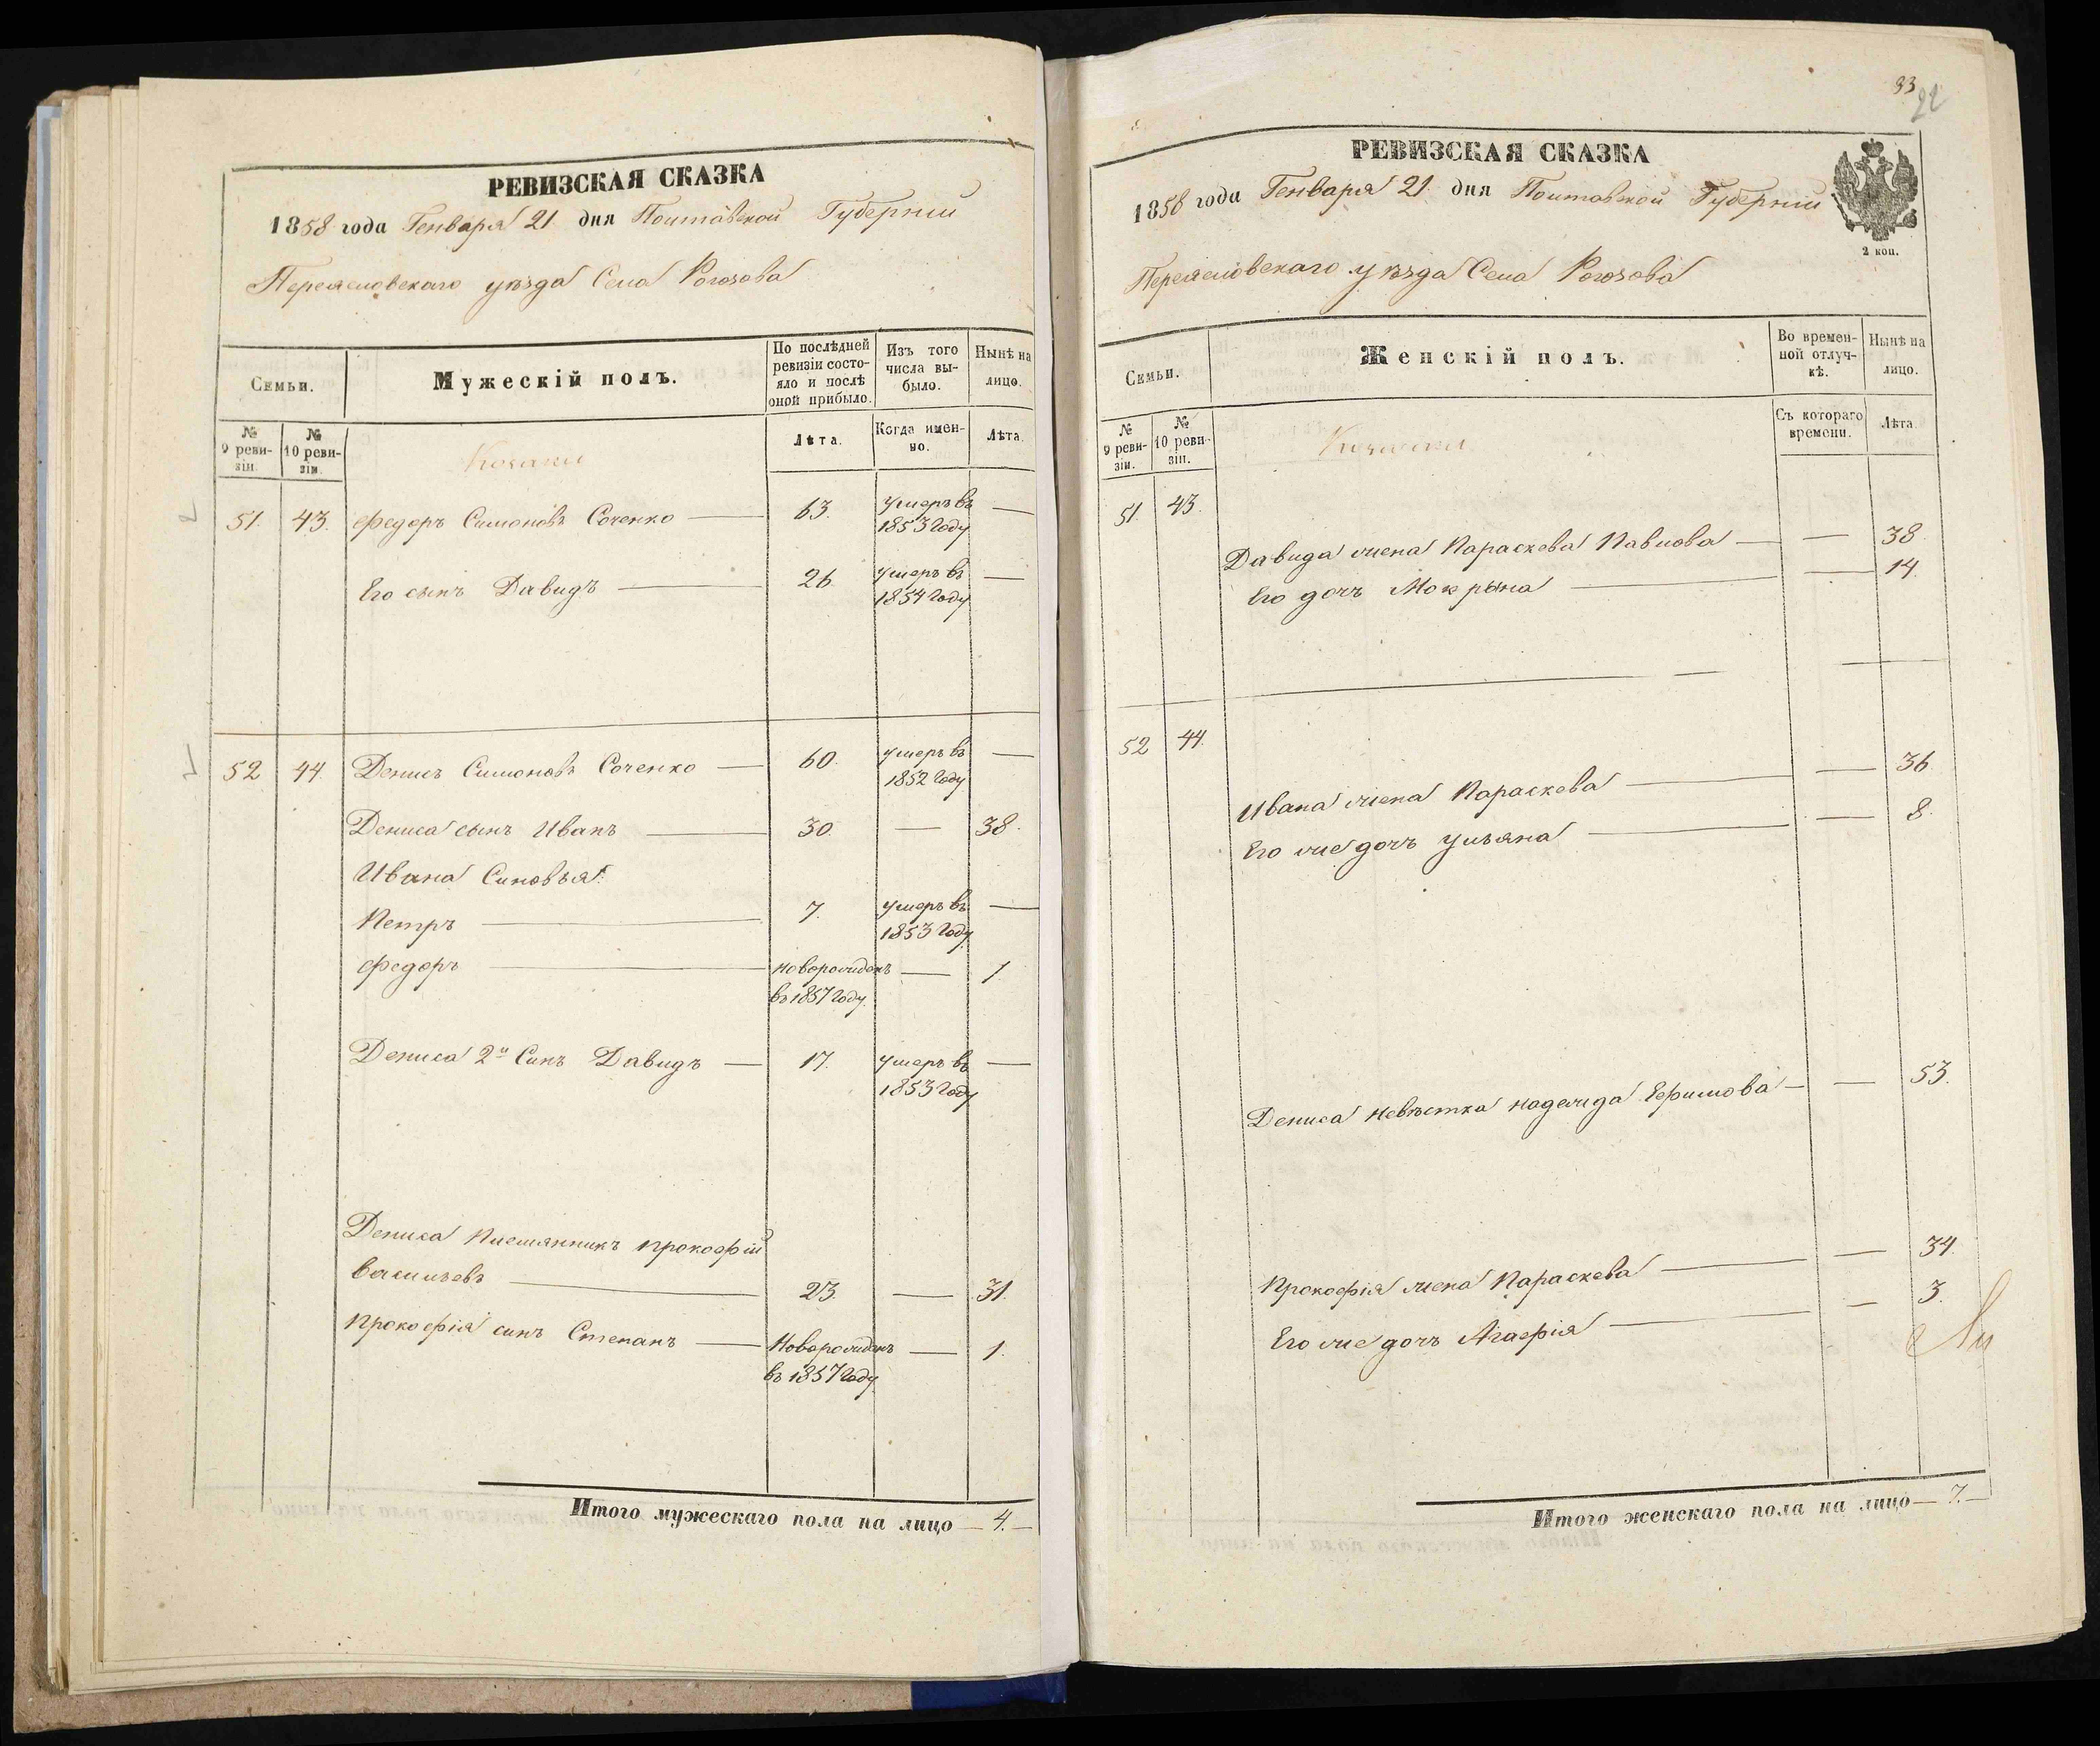 РЕВИЗСКАЯ СКАЗКА
1858 года Генваря 21 дня Полтавской Губерніи
Переяславскаго уѣзда Села Рогозова
Семьи.
Мужескій полъ.
По послѣдней ревизіи состояло и послѣ оной прибыло.
Изъ того числа выбыло.
Нынѣ на лицо.
№ 9 ревизіи.
№ 10 ревизіи.
Козаки
Лѣта.
Когда именно.
Лѣта.
51. 43. Федоръ Симоновъ Соченко — 63. умеръ въ 1853 году —
Его сынъ Давидъ — 26. умеръ въ 1854 году —
52 44. Денисъ Симоновъ Соченко — 60. умеръ въ 1852 году —
Дениса сынъ Иванъ — 30. — 38.
Ивана Синовья:
Петръ — 7. умеръ въ 1853 году —
Федоръ — новорожденъ въ 1857 году. — 1
Дениса 2й Синъ Давидъ — 17. умеръ въ 1853 году —
Дениса племянникъ Прокофій
Васильевъ — 23. — 31.
Прокофія синъ Степанъ — Новорожденъ въ 1857 году — 1.
Итого мужескаго пола на лицо — 4. —
93
РЕВИЗСКАЯ СКАЗКА
1858 года Генваря 21. дня Полтавской Губерніи
2 коп.
Переяславскаго уѣзда Села Рогозова
Семьи.
Женскій полъ.
Во временной отлучкѣ.
Нынѣ на лицо.
№ 9 ревизіи.
№ 10 ревизіи.
Съ котораго времени.
Лѣта
51. 43.
Давида жена Параскева Павлова — — 38.
Его дочь Мокрына — — 14.
52 44.
Ивана жена Параскева — — 36.
Его же дочь Ульяна — — 8.
Дениса невѣстка надежда Ефимова — — 53.
Прокофія жена Параскева — — 34.
Его же дочь Агафія — — 3.
Итого женскаго пола на лицо — 7. —